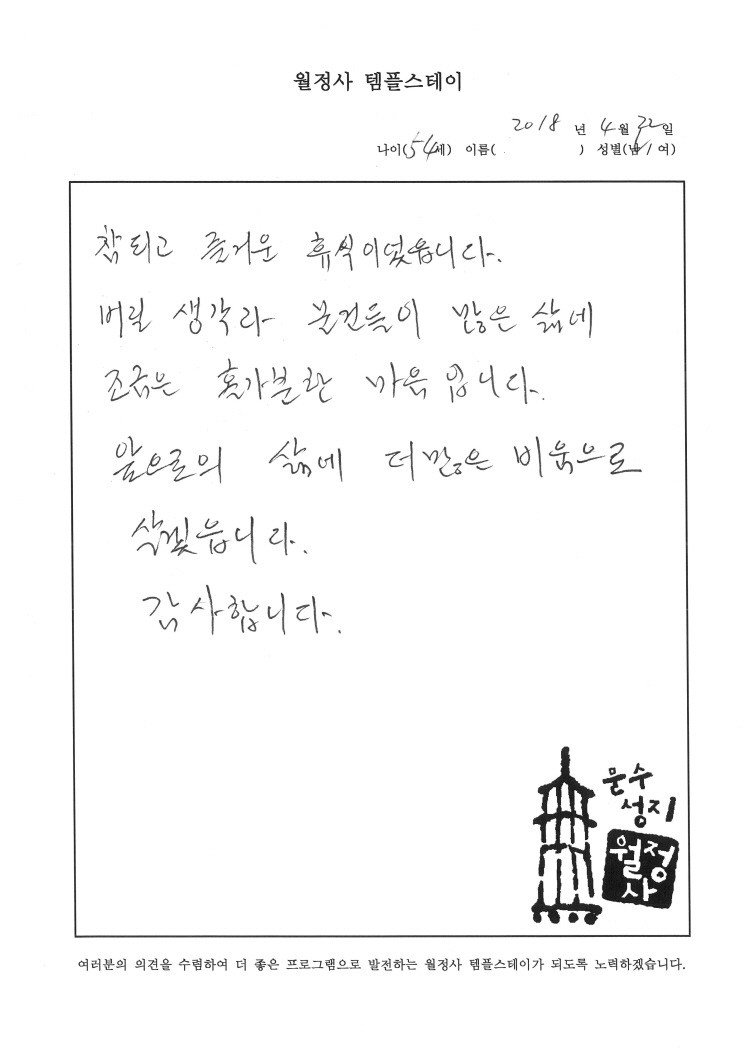 월정사 템플스테이
2018 년 4월 22일
나이(54세) 이름( ) 성별(남 / 여)
참되고 즐거운 휴식이었읍니다.
버릴 생각과 물건들이 많은 삶에
조금은 홀가분한 마음입니다.
앞으로의 삶에 더많은 비움으로
살겠읍니다.
감사합니다.
문수
성지
월정
사
여러분의 의견을 수렴하여 더 좋은 프로그램으로 발전하는 월정사 템플스테이가 되도록 노력하겠습니다.